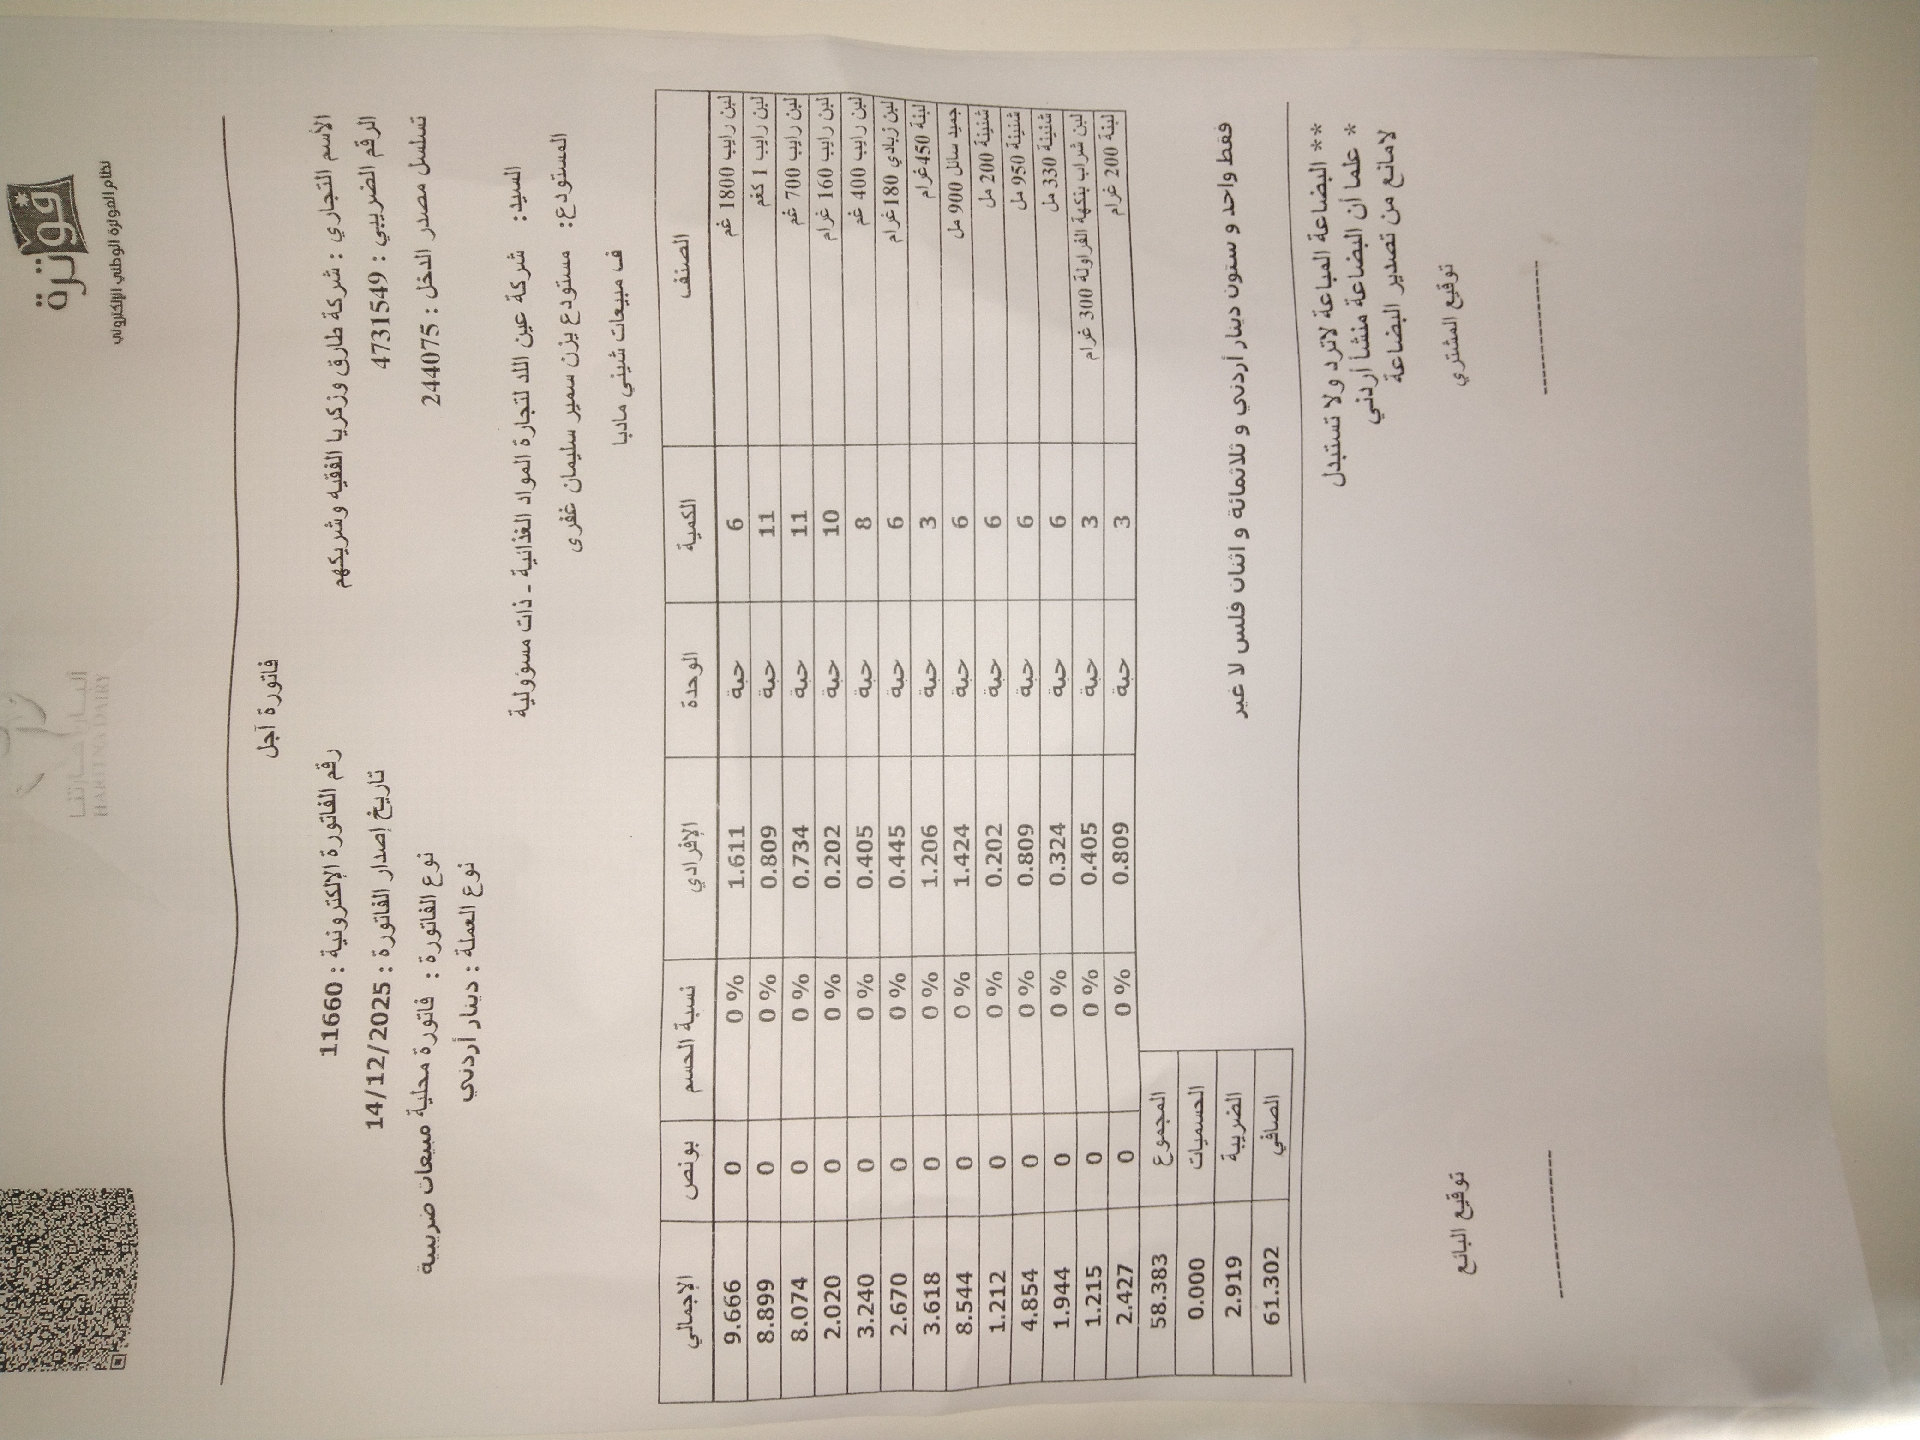 فوترة
نظام الفوترة الوطني الإلكتروني
HARITNA DAIRY
فاتورة آجل
الأسم التجاري : شركة طارق وزكريا الفقيه وشريكهم
رقم الفاتورة الإلكترونية : 11660
الرقم الضريبي : 4731549
تاريخ إصدار الفاتورة : 14/12/2025
تسلسل مصدر الدخل : 244075
نوع الفاتورة : فاتورة محلية مبيعات ضريبية
نوع العملة : دينار أردني
السيد: شركة عين اللد لتجارة المواد الغذائية - ذات مسؤولية
المستودع: مستودع يزن سمير سليمان غفرى
ف مبيعات شيني مادبا
الصنف الكمية الوحدة الإفرادي نسبة الحسم بونص الإجمالي
لبن رايب 1800 غم 6 حبة 1.611 0 % 0 9.666
لبن رايب 1 كغم 11 حبة 0.809 0 % 0 8.899
لبن رايب 700 غم 11 حبة 0.734 0 % 0 8.074
لبن رايب 160 غرام 10 حبة 0.202 0 % 0 2.020
لبن رايب 400 غم 8 حبة 0.405 0 % 0 3.240
لبن زبادي 180غرام 6 حبة 0.445 0 % 0 2.670
لبنة 450غرام 3 حبة 1.206 0 % 0 3.618
جميد سائل 900 مل 6 حبة 1.424 0 % 0 8.544
شنينة 200 مل 6 حبة 0.202 0 % 0 1.212
شنينة 950 مل 6 حبة 0.809 0 % 0 4.854
شنينة 330 مل 6 حبة 0.324 0 % 0 1.944
لبن شراب بنكهة الفراولة 300 غرام 3 حبة 0.405 0 % 0 1.215
لبنة 200 غرام 3 حبة 0.809 0 % 0 2.427
المجموع 58.383
الحسميات 0.000
الضريبة 2.919
الصافي 61.302
فقط واحد و ستون دينار أردني و ثلاثمائة و اثنان فلس لا غير
** البضاعة المباعة لاترد ولا تستبدل
* علما أن البضاعة منشأ أردني
لامانع من تصدير البضاعة
توقيع المشتري
توقيع البائع